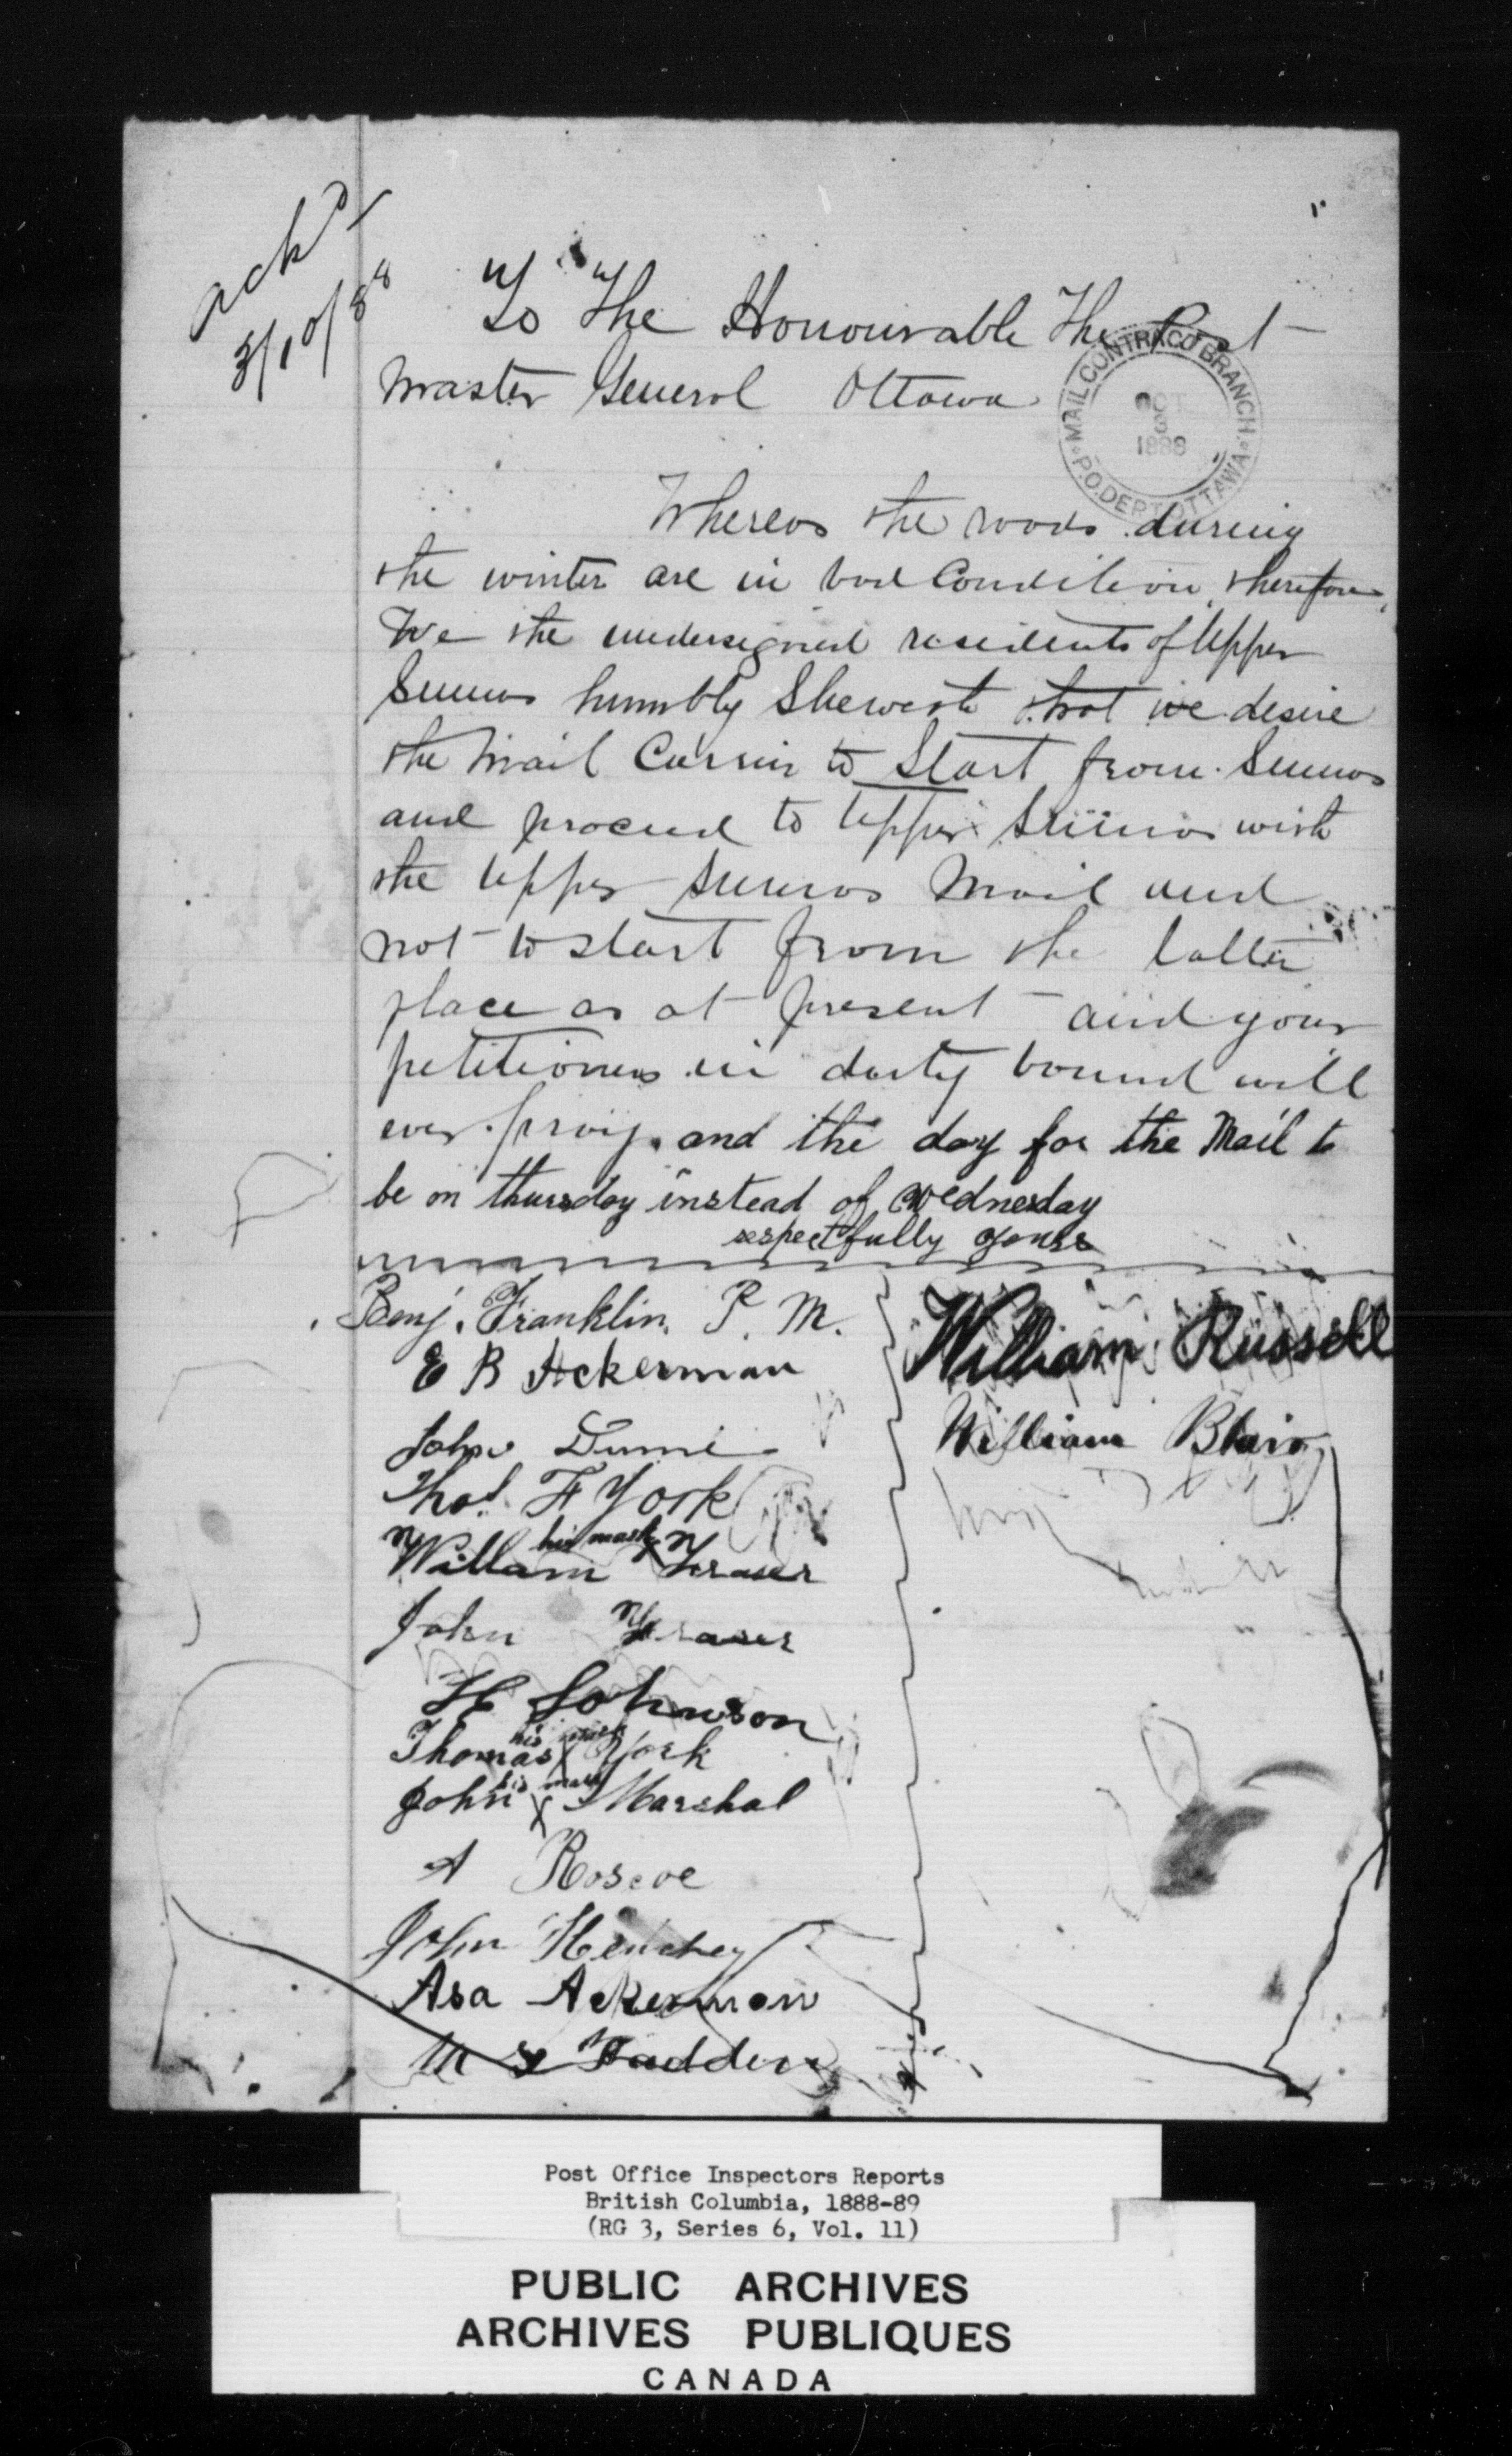 ackd
3/10/88
To The Honourable The Post
Master General Ottawa
MAIL CONTRACT BRANCH
OCT
3
1888
P.O. DEPT OTTAWA
Whereas the roads during
the winter are in bad Condition, therefore,
We the undersigned residents of Upper
Sumas humbly Sheweth that we desire
the Mail Carrier to Start from Sumas
and proceed to Upper Sumas with
the Upper Sumas Mail and
not to start from the latter
place as at present and your
petitioners in duty bound will
ever pray. and the day for the Mail to
be on thursday instead of Wednesday
respectfully yours
Benj. Franklin, P. M.
E B Ackerman
John
Thos. F York
his mark
William X Fraser
John Fraser
H Johnson
his mark
Thomas X York
his mark
John X Marshal
A Roscoe
John
Asa Ackerman
Fadden
William Russell
William Blair
Post Office Inspectors Reports
British Columbia, 1888-89
(RG 3, Series 6, Vol. 11)
PUBLIC ARCHIVES
ARCHIVES PUBLIQUES
CANADA